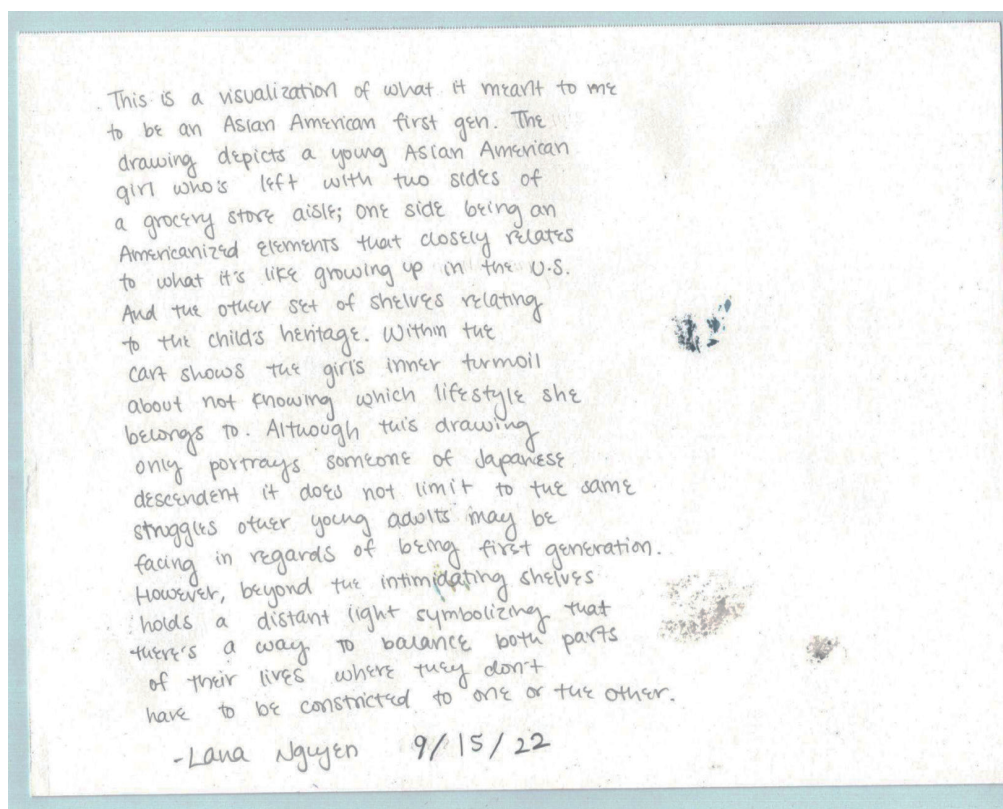 This is a visualization of what it meant to me
to be an Asian American first gen. The
drawing depicts a young Asian American
girl who's left with two sides of
a grocery store aisle; one side being an
Americanized elements that closely relates
to what it's like growing up in the U.S.
And the other set of shelves relating
to the child's heritage. Within the
cart shows the girl's inner turmoil
about not knowing which lifestyle she
belongs to. Although this drawing
only portrays someone of Japanese
descendent it does not limit to the same
struggles other young adults may be
facing in regards of being first generation.
However, beyond the intimidating shelves
holds a distant light symbolizing that
there's a way to balance both parts
of their lives where they don't
have to be constricted to one or the other.
-Lana Nguyen 9/15/22